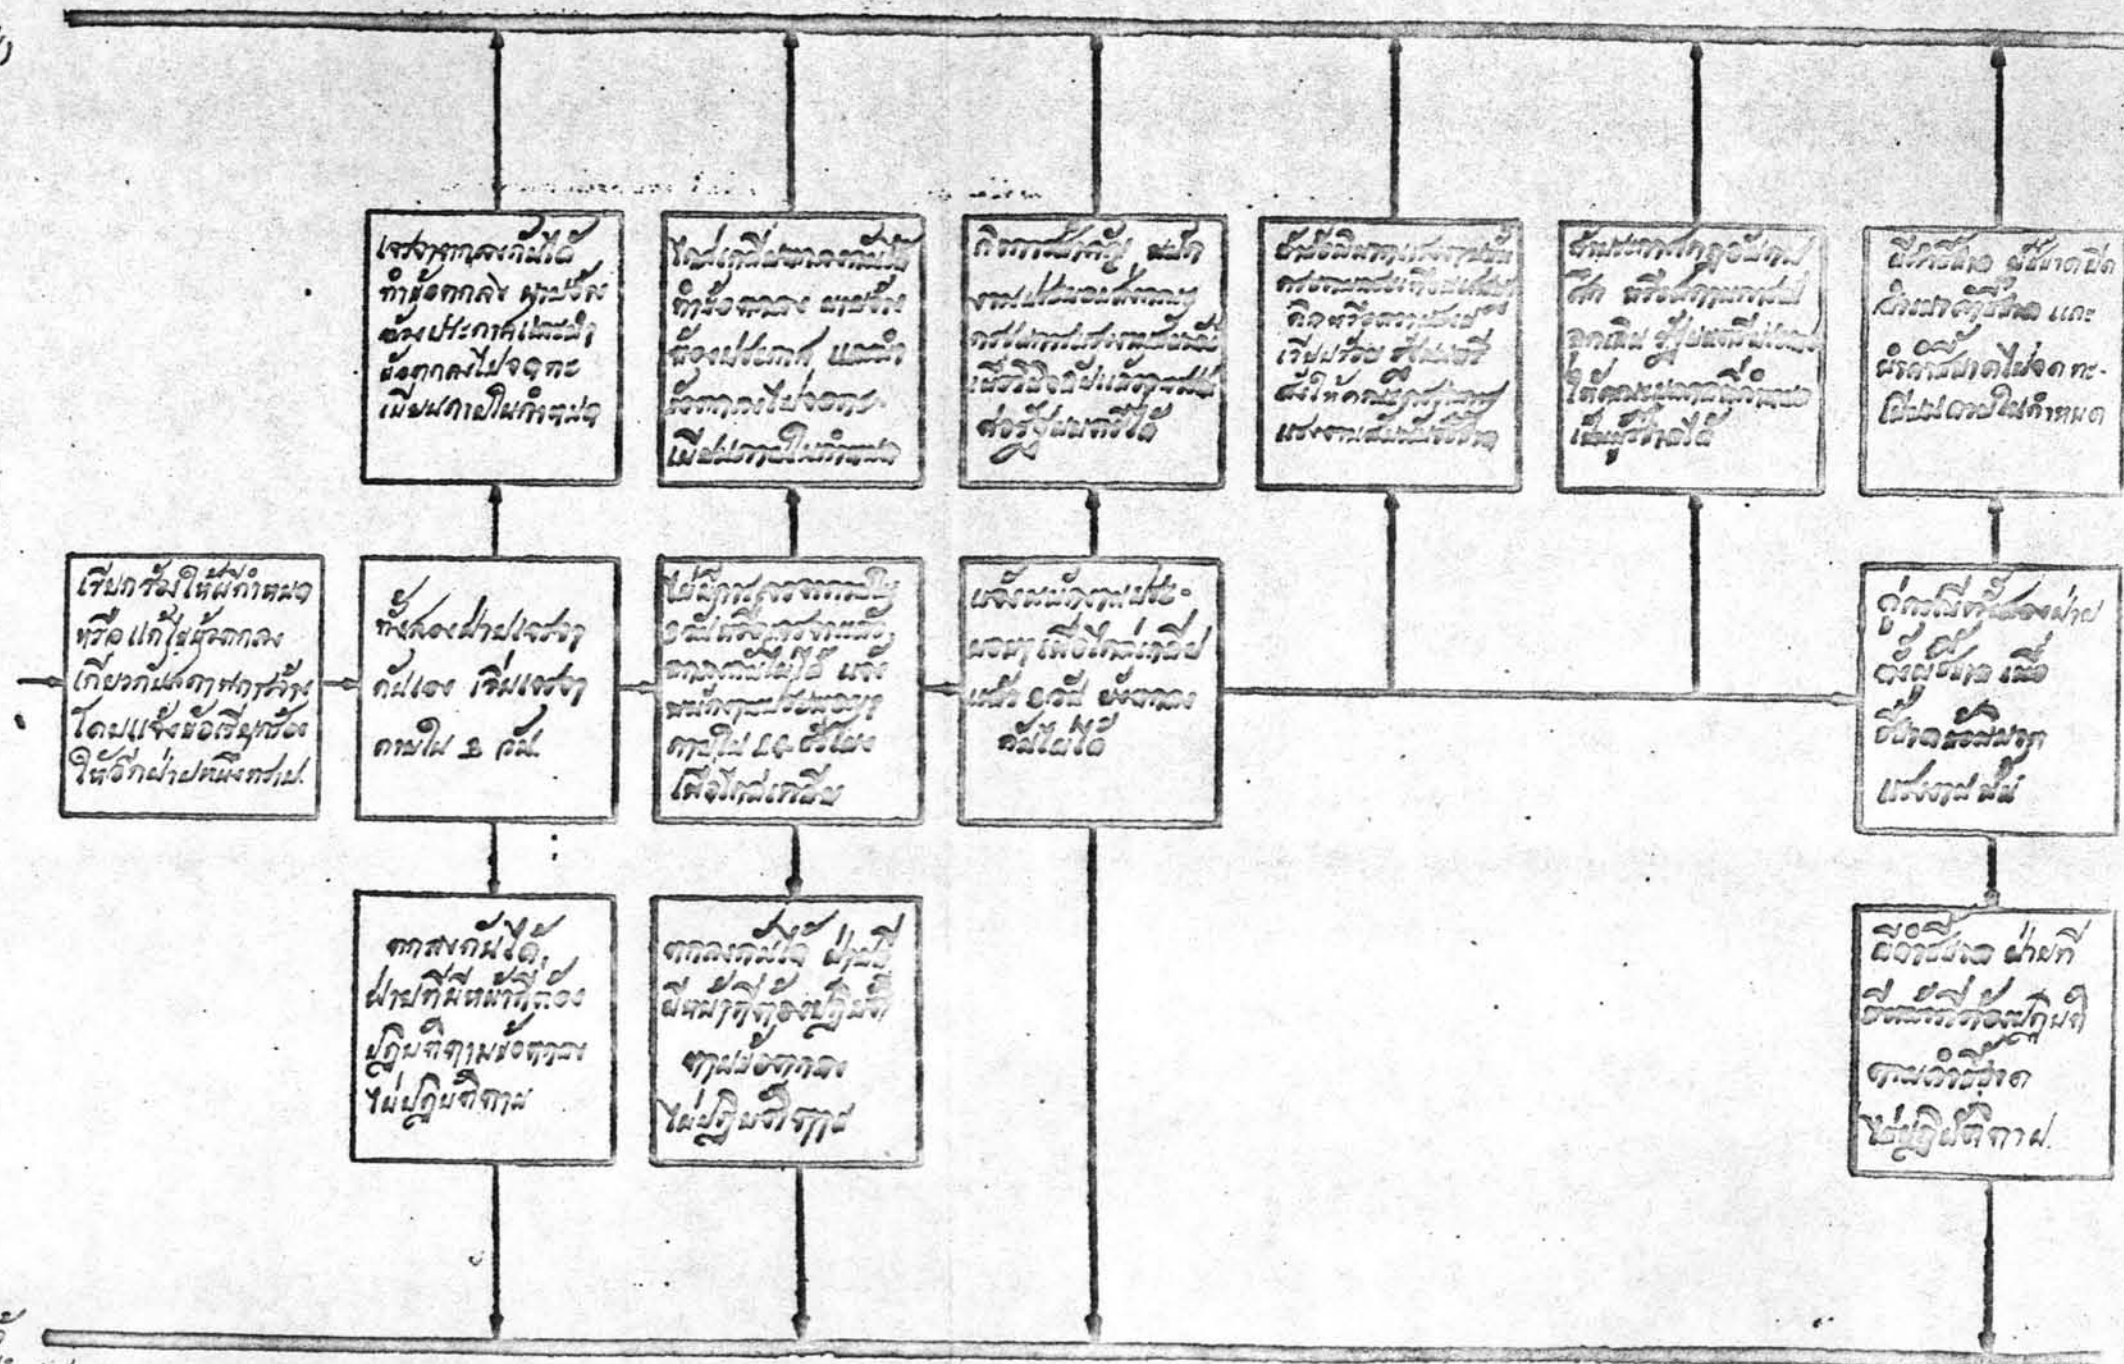 เจรจาตกลงกันได้
ทำข้อตกลง นายจ้าง
ต้องประกาศและนำ
ข้อตกลงไปจดทะ
เบียนภายในกำหนด
ไกล่เกลี่ยตกลงกันได้
ทำข้อตกลง นายจ้าง
ต้องประกาศ และนำ
ข้อตกลงไปจดทะ-
เบียนภายในกำหนด
กิจการสำคัญ พนัก
งานประนอมส่งคณะ
กรรมการแรงงานสัมพันธ์
เพื่อวินิจฉัยแล้วอุทธรณ์
ต่อรัฐมนตรีได้
ถ้าข้อพิพาทแรงงานนั้น
กระทบกระเทือนเศรษฐ
กิจหรือความสงบ
เรียบร้อย รัฐมนตรี
สั่งให้คณะกรรมการ
แรงงานสัมพันธ์ชี้ขาด
ถ้าประกาศกฎอัยการ
ศึก หรือสถานการณ์
ฉุกเฉิน รัฐมนตรี
ให้คณะบุคคลที่กำหนด
เป็นผู้ชี้ขาดได้
มีคำชี้ขาด ผู้ชี้ขาดปิด
สำเนาคำชี้ขาด และ
นำคำชี้ขาดไปจดทะ-
เบียนภายในกำหนด
เรียกร้องให้มีกำหนด
หรือแก้ไขข้อตกลง
เกี่ยวกับสภาพการจ้าง
โดยแจ้งข้อเรียกร้อง
ให้อีกฝ่ายหนึ่งทราบ.
ทั้งสองฝ่ายเจรจา
กันเอง เริ่มเจรจา
ภายใน 3 วัน
ไม่มีการเจรจาภายใน
3 วันหรือเจรจาแล้ว
ตกลงกันไม่ได้ แจ้ง
พนักงานประนอมฯ
ภายใน 24 ชั่วโมง
เพื่อไกล่เกลี่ย
แจ้งพนักงานประ-
นอมฯ เพื่อไกล่เกลี่ย
แล้ว 5 วัน ยังตกลง
กันไม่ได้
คู่กรณีทั้งสองฝ่าย
ตั้งผู้ชี้ขาด เพื่อ
ชี้ขาดข้อพิพาท
แรงงานนั้น
ตกลงกันได้
ฝ่ายที่มีหน้าที่ต้อง
ปฏิบัติตามข้อตกลง
ไม่ปฏิบัติตาม
ตกลงกันได้ ฝ่ายที่
มีหน้าที่ต้องปฏิบัติ
ตามข้อตกลง
ไม่ปฏิบัติตาม
มีคำชี้ขาด ฝ่ายที่
มีหน้าที่ต้องปฏิบัติ
ตามคำชี้ขาด
ไม่ปฏิบัติตาม.